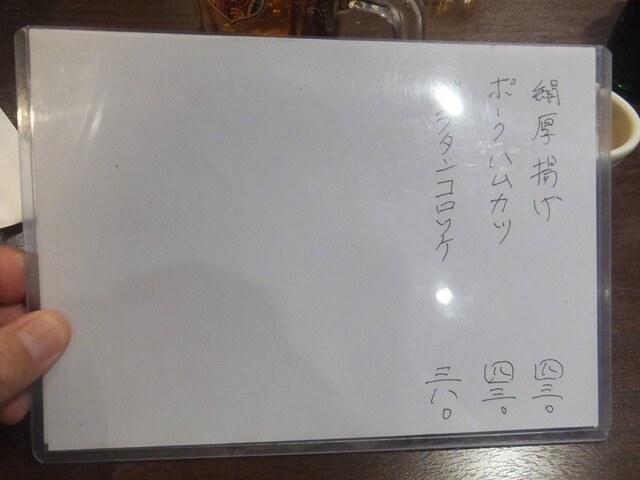 絹厚揚げ 四三〇
ポークハムカツ 四三〇
グラタンコロッケ 三八〇